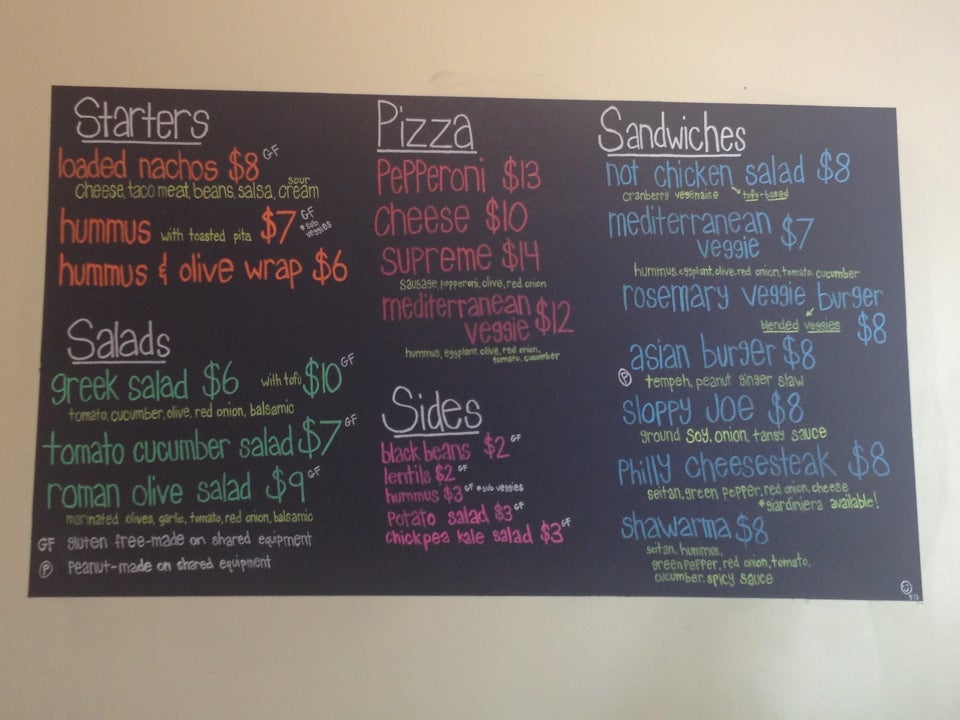 Starters
loaded nachos $8 GF
cheese, taco meat, beans, salsa, sour cream
hummus with toasted pita $7 GF *sub veggies
hummus & olive wrap $6
Salads
greek salad $6 with tofu $10 GF
tomato, cucumber, olive, red onion, balsamic
tomato cucumber salad $7 GF
roman olive salad $9 GF
marinated olives, garlic, tomato, red onion, balsamic
GF gluten free-made on shared equipment
P Peanut-made on shared equipment
Pizza
Pepperoni $13
Cheese $10
Supreme $14
sausage, pepperoni, olive, red onion
mediterranean
veggie $12
hummus, eggplant, olive, red onion,
tomato, cucumber
Sides
black beans $2 GF
lentils $2 GF
hummus $3 GF *sub veggies
potato salad $3 GF
chickpea kale salad $3 GF
Sandwiches
not chicken salad $8
cranberry vegenaise tofu-based
mediterranean
veggie $7
hummus, eggplant, olive, red onion, tomato, cucumber
rosemary veggie burger
blended veggies $8
asian burger $8
P tempeh, peanut ginger slaw
sloppy Joe $8
ground soy, onion, tangy sauce
Philly cheesesteak $8
seitan, green pepper, red onion, cheese
*giardiniera available!
shawarma $8
seitan, hummus,
green pepper, red onion, tomato,
cucumber, spicy sauce